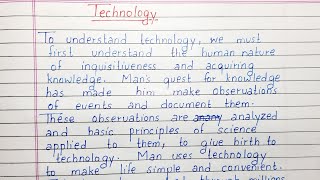 Technology
To understand technology, we must
first understand the human nature
of inquisitiveness and acquiring
knowledge. Man's quest for knowledge
has made him make observations
of events and document them.
These observations are many analyzed
and basic principles of science
applied to them, to give birth to
technology. Man uses technology
to make life simple and convenient.